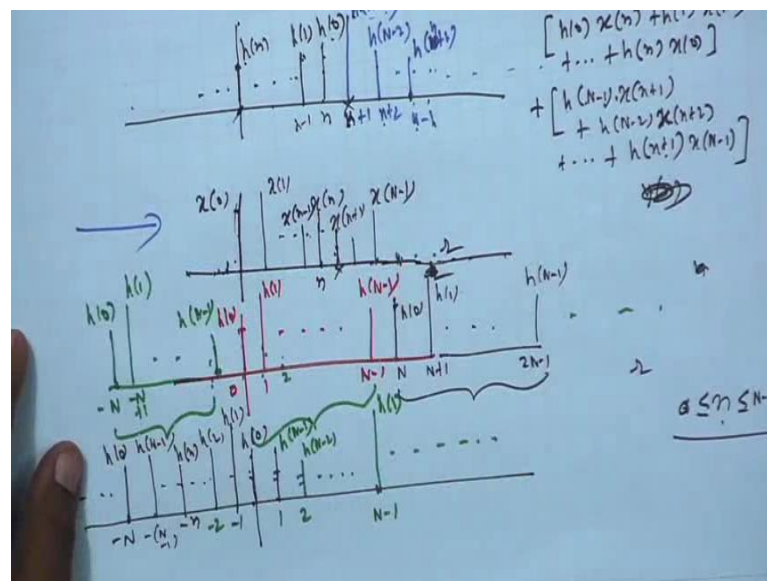 h(n) h(1) h(0) h(N-2) h(n+2)
n-1 n n+1 n+2 N-1
[h(0) x(n) + h(1)
+... + h(n) x(0)]
+ [h(N-1).x(n+1)
+ h(N-2) x(n+2)
+ ... + h(n+1) x(N-1)]
x(0) x(1) x(n-1) x(n) x(n+1) x(N-1)
n
h(0) h(1) h(N-1) h(0) h(1) h(N-1) h(0) h(1) h(N-1)
-N -N+1 0 1 2 N-1 N N+1 2N-1
0 ≤ n ≤ N-
h(0) h(N-1) h(n) h(2) h(1) h(0) h(N-1) h(N-2) h(1)
-N -(N-1) -n -2 -1 1 2 N-1